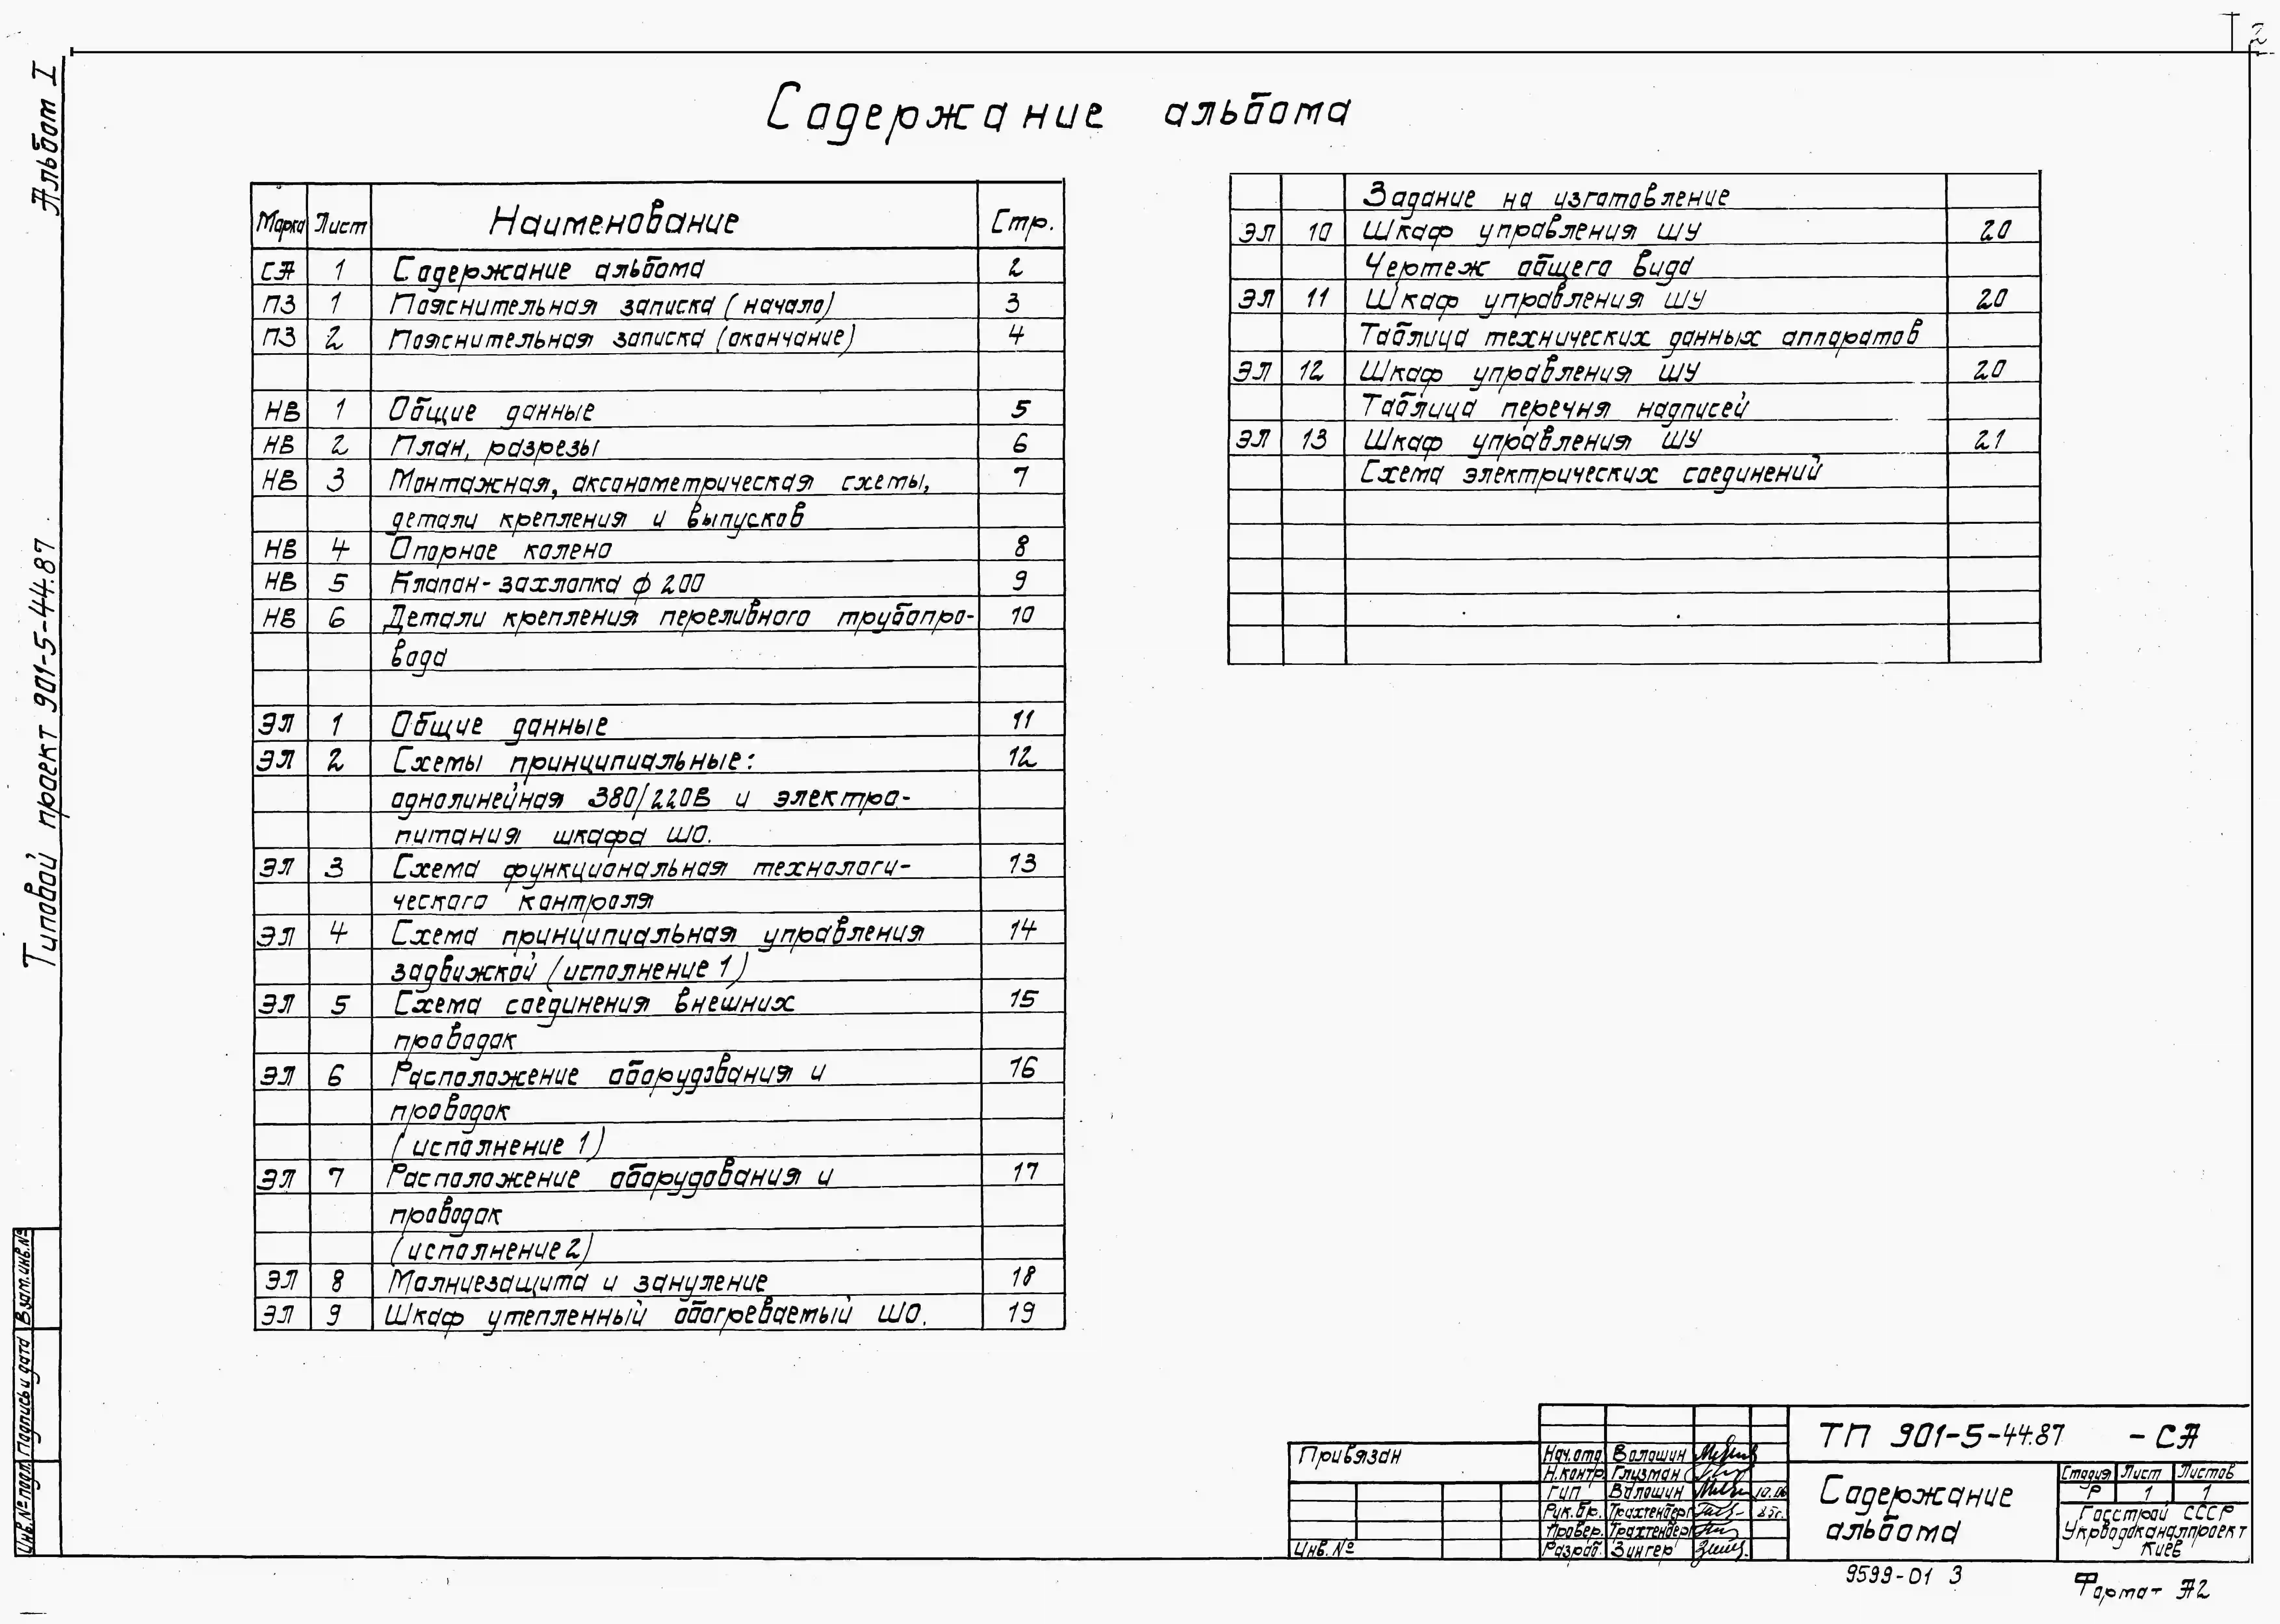 2
Альбом I
Типовой проект 901-5-44.87
Содержание альбома
Марка Лист Наименование Стр.
СА 1 Содержание альбома 2
ПЗ 1 Пояснительная записка (начало) 3
ПЗ 2 Пояснительная записка (окончание) 4
НВ 1 Общие данные 5
НВ 2 План, разрезы 6
НВ 3 Монтажная, аксонометрическая схемы, 7
детали крепления и выпусков
НВ 4 Опорное колено 8
НВ 5 Клапан-захлопка ф 200 9
НВ 6 Детали крепления переливного трубопро- 10
вода
ЭЛ 1 Общие данные 11
ЭЛ 2 Схемы принципиальные: 12
однолинейная 380/220В и электро-
питания шкафа ШО.
ЭЛ 3 Схема функциональная технологи- 13
ческого контроля
ЭЛ 4 Схема принципиальная управления 14
задвижкой (исполнение 1)
ЭЛ 5 Схема соединения внешних 15
проводок
ЭЛ 6 Расположение оборудования и 16
проводок
(исполнение 1)
ЭЛ 7 Расположение оборудования и 17
проводок
(исполнение 2)
ЭЛ 8 Молниезащита и зануление 18
ЭЛ 9 Шкаф утепленный обогреваемый ШО. 19
Задание на изготовление
ЭЛ 10 Шкаф управления ШУ 20
Чертеж общего вида
ЭЛ 11 Шкаф управления ШУ 20
Таблица технических данных аппаратов
ЭЛ 12 Шкаф управления ШУ 20
Таблица перечня надписей
ЭЛ 13 Шкаф управления ШУ 21
Схема электрических соединений
Взам.инв.№
Подпись и дата
Инв.№ подл.
Привязан
Инв.№
Нач.отд Волошин
Н.контр. Глизман
ГИП Волошин 10.06
Рук.бр. Трахтенберг 85г.
Провер. Трахтенберг
Разраб. Зингер
ТП 901-5-44.87 -СА
Содержание
альбома
Стадия Лист Листов
Р 1 1
Госстрой СССР
Укрводоканалпроект
Киев
9599-01 3
Формат А2